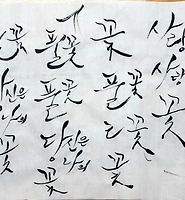 꽃
당신은
나의
꽃
풀꽃
풀꽃
당신은
나의
꽃
꽃
풀꽃
들꽃
꽃
사랑
사랑
꽃